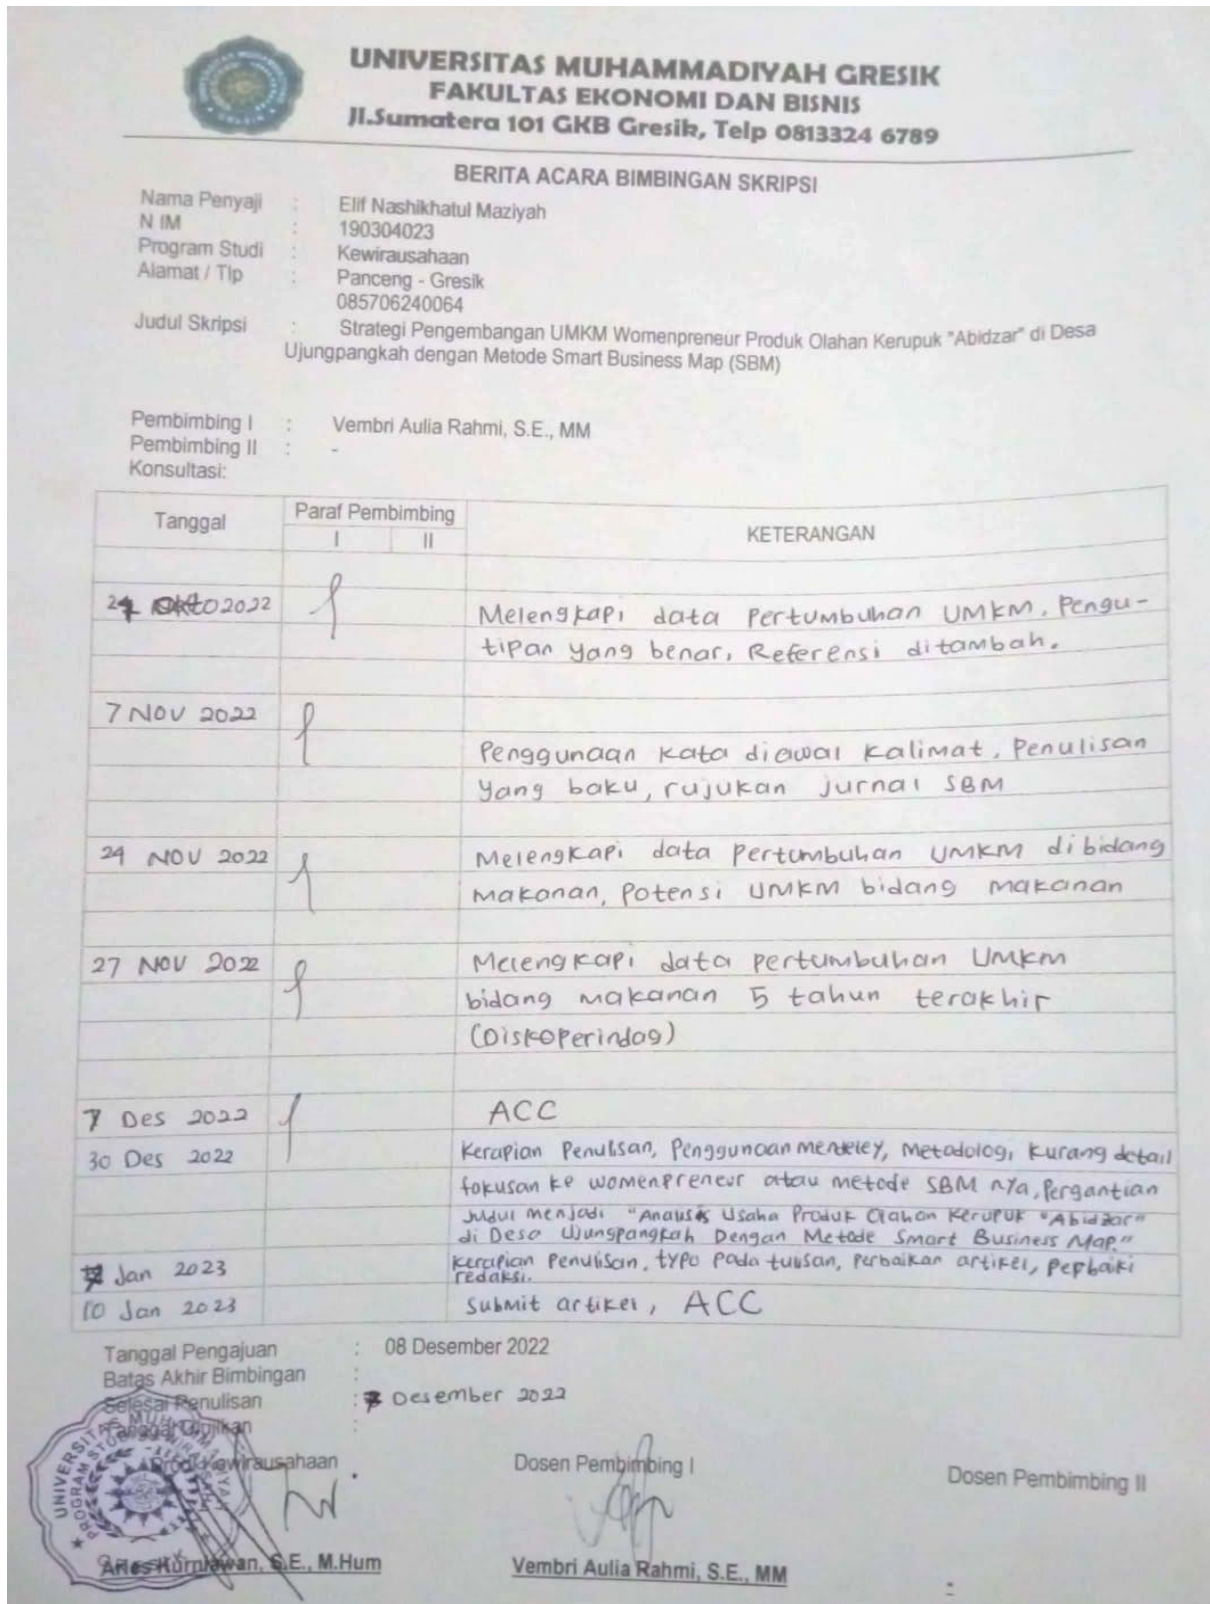 UNIVERSITAS MUHAMMADIYAH GRESIK
FAKULTAS EKONOMI DAN BISNIS
Jl.Sumatera 101 GKB Gresik, Telp 0813324 6789
BERITA ACARA BIMBINGAN SKRIPSI
Nama Penyaji : Elif Nashikhatul Maziyah
N IM : 190304023
Program Studi : Kewirausahaan
Alamat / Tlp : Panceng - Gresik
085706240064
Judul Skripsi : Strategi Pengembangan UMKM Womenpreneur Produk Olahan Kerupuk "Abidzar" di Desa
Ujungpangkah dengan Metode Smart Business Map (SBM)
Pembimbing I : Vembri Aulia Rahmi, S.E., MM
Pembimbing II : -
Konsultasi:
Tanggal Paraf Pembimbing KETERANGAN
I II
2022 Melengkapi data Pertumbuhan UMKM, Pengu-
tipan yang benar, Referensi ditambah.
7 NOV 2022
Penggunaan kata diawal kalimat, Penulisan
yang baku, rujukan jurnal SBM
24 NOV 2022 Melengkapi data pertumbuhan UMKM dibidang
makanan, potensi UMKM bidang makanan
27 NOV 2022 Melengkapi data pertumbuhan UMKM
bidang makanan 5 tahun terakhir
(Diskoperindag)
7 Des 2022 ACC
30 Des 2022 Kerapian Penulisan, Penggunaan mendeley, Metodologi kurang detail
fokusan ke womenpreneur atau metode SBM nya, Pergantian
Judul menjadi "Analisis Usaha Produk Olahan Kerupuk "Abidzar"
di Desa Ujungpangkah Dengan Metode Smart Business Map."
Jan 2023 Kerapian Penulisan, typo pada tulisan, Perbaikan artikel, Perbaiki
redaksi.
10 Jan 2023 Submit artikel, ACC
Tanggal Pengajuan : 08 Desember 2022
Batas Akhir Bimbingan :
Selesai Penulisan : 7 Desember 2022
Tanggal Diujikan :
Prodi Kewirausahaan Dosen Pembimbing I Dosen Pembimbing II
Aries Kurniawan, S.E., M.Hum Vembri Aulia Rahmi, S.E., MM -